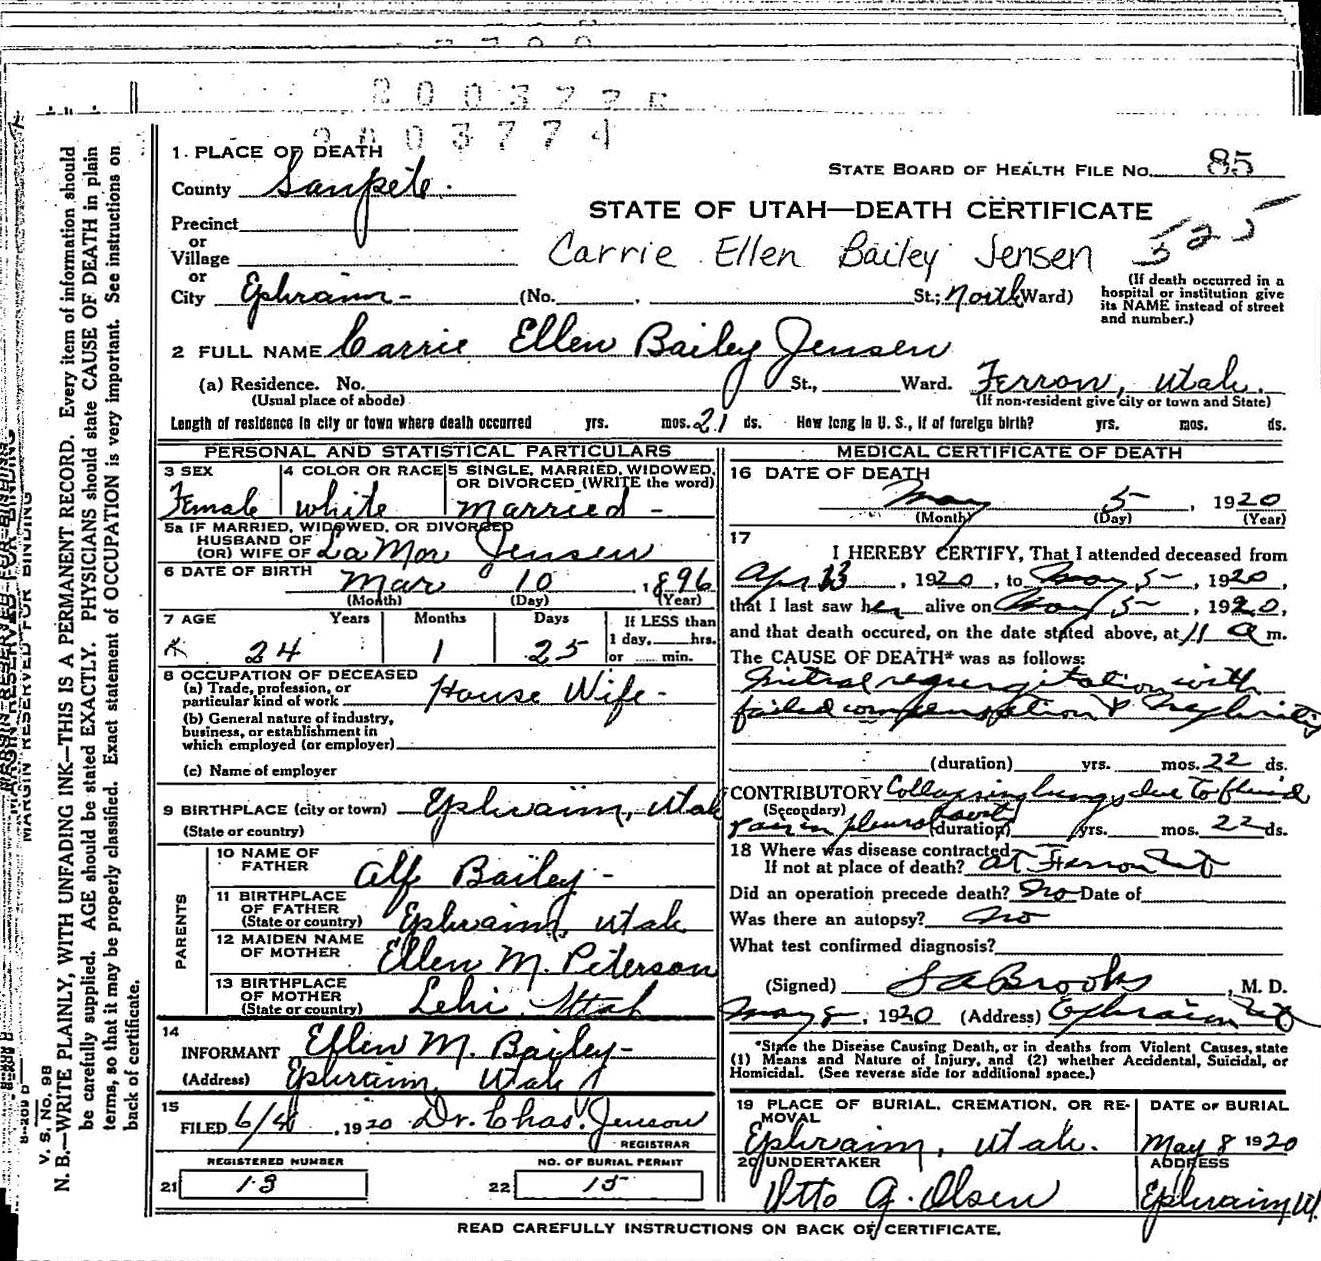 2003774
1. PLACE OF DEATH
STATE BOARD OF HEALTH FILE No. 85
County Sanpete.
STATE OF UTAH—DEATH CERTIFICATE
Precinct
or
Village
Carrie Ellen Bailey Jensen 525
or
City Ephraim - (No. , St.; North Ward)
(If death occurred in a hospital or institution give its NAME instead of street and number.)
2 FULL NAME Carrie Ellen Bailey Jensen
(a) Residence. No. St., Ward. Ferron, Utah.
(Usual place of abode) (If non-resident give city or town and State)
Length of residence in city or town where death occurred yrs. mos. 21 ds. How long in U. S., if of foreign birth? yrs. mos. ds.
PERSONAL AND STATISTICAL PARTICULARS
3 SEX Female
4 COLOR OR RACE white
5 SINGLE, MARRIED, WIDOWED, OR DIVORCED (WRITE the word) married -
5a IF MARRIED, WIDOWED, OR DIVORCED
HUSBAND OF
(OR) WIFE OF La Mor Jensen
6 DATE OF BIRTH Mar 10, 1896
(Month) (Day) (Year)
7 AGE Years Months Days If LESS than
1 day, hrs.
or min.
24 1 25
8 OCCUPATION OF DECEASED
(a) Trade, profession, or particular kind of work House Wife -
(b) General nature of industry, business, or establishment in which employed (or employer)
(c) Name of employer
9 BIRTHPLACE (city or town) Ephraim, Utah
(State or country)
PARENTS
10 NAME OF FATHER Alf Bailey -
11 BIRTHPLACE OF FATHER (State or country) Ephraim, Utah
12 MAIDEN NAME OF MOTHER Ellen M. Peterson
13 BIRTHPLACE OF MOTHER (State or country) Lehi, Utah
14
INFORMANT Ellen M. Bailey -
(Address) Ephraim, Utah
15
FILED 1920 Dr. Chas. Jenson
REGISTRAR
REGISTERED NUMBER
21 13
NO. OF BURIAL PERMIT
22 15
MEDICAL CERTIFICATE OF DEATH
16 DATE OF DEATH
May 5-, 1920
(Month) (Day) (Year)
17
I HEREBY CERTIFY, That I attended deceased from
Apr 13, 1920, to May 5-, 1920,
that I last saw her alive on May 5-, 1920,
and that death occured, on the date stated above, at 11 a m.
The CAUSE OF DEATH* was as follows:
Mitral regurgitation with
failed compensation & Nephritis
(duration) yrs. mos. 22 ds.
CONTRIBUTORY Collapsing lungs due to fluid
(Secondary)
in pleural cavity (duration) yrs. mos. 22 ds.
18 Where was disease contracted
If not at place of death? at Ferron Ut
Did an operation precede death? No Date of
Was there an autopsy? No
What test confirmed diagnosis?
(Signed) S A Brooks, M. D.
May 8, 1920 (Address) Ephraim Ut
*State the Disease Causing Death, or in deaths from Violent Causes, state
(1) Means and Nature of Injury, and (2) whether Accidental, Suicidal, or
Homicidal. (See reverse side for additional space.)
19 PLACE OF BURIAL, CREMATION, OR REMOVAL
Ephraim, Utah.
DATE OF BURIAL
May 8 1920
20 UNDERTAKER
Otto A. Olsen
ADDRESS
Ephraim Ut.
READ CAREFULLY INSTRUCTIONS ON BACK OF CERTIFICATE.
MARGIN RESERVED FOR BINDING
V. S. No. 98
N. B.—WRITE PLAINLY, WITH UNFADING INK—THIS IS A PERMANENT RECORD. Every item of information should
be carefully supplied. AGE should be stated EXACTLY. PHYSICIANS should state CAUSE OF DEATH in plain
terms, so that it may be properly classified. Exact statement of OCCUPATION is very important. See instructions on
back of certificate.